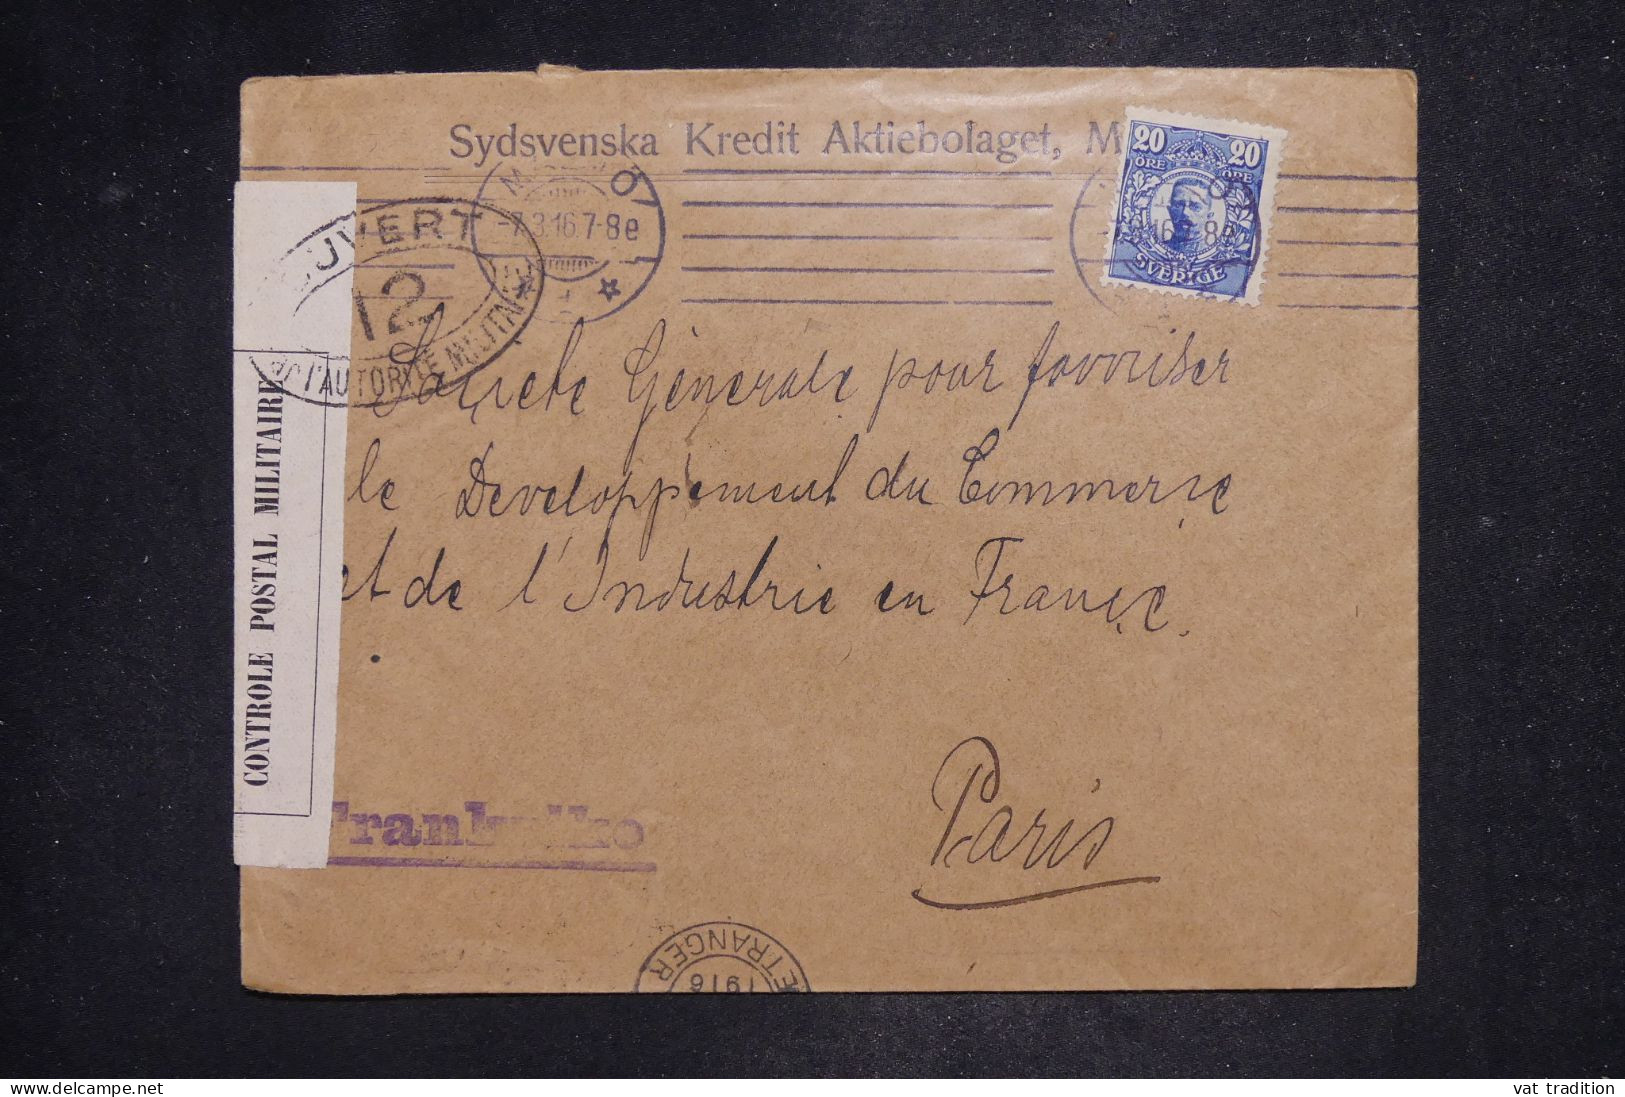 Sydsvenska Kredit Aktiebolaget, M
20 20
ÖRE ÖRE
SVERIGE
-7.3.16.7-8e
UVERT
12
L'AUTORITÉ MILITAIRE
CONTROLE POSTAL MILITAIRE
Société Générale pour favoriser
le Developpement du Commerce
et de l'Industrie en France.
Paris
ETRANGER
1916
vat tradition
delcampe.net